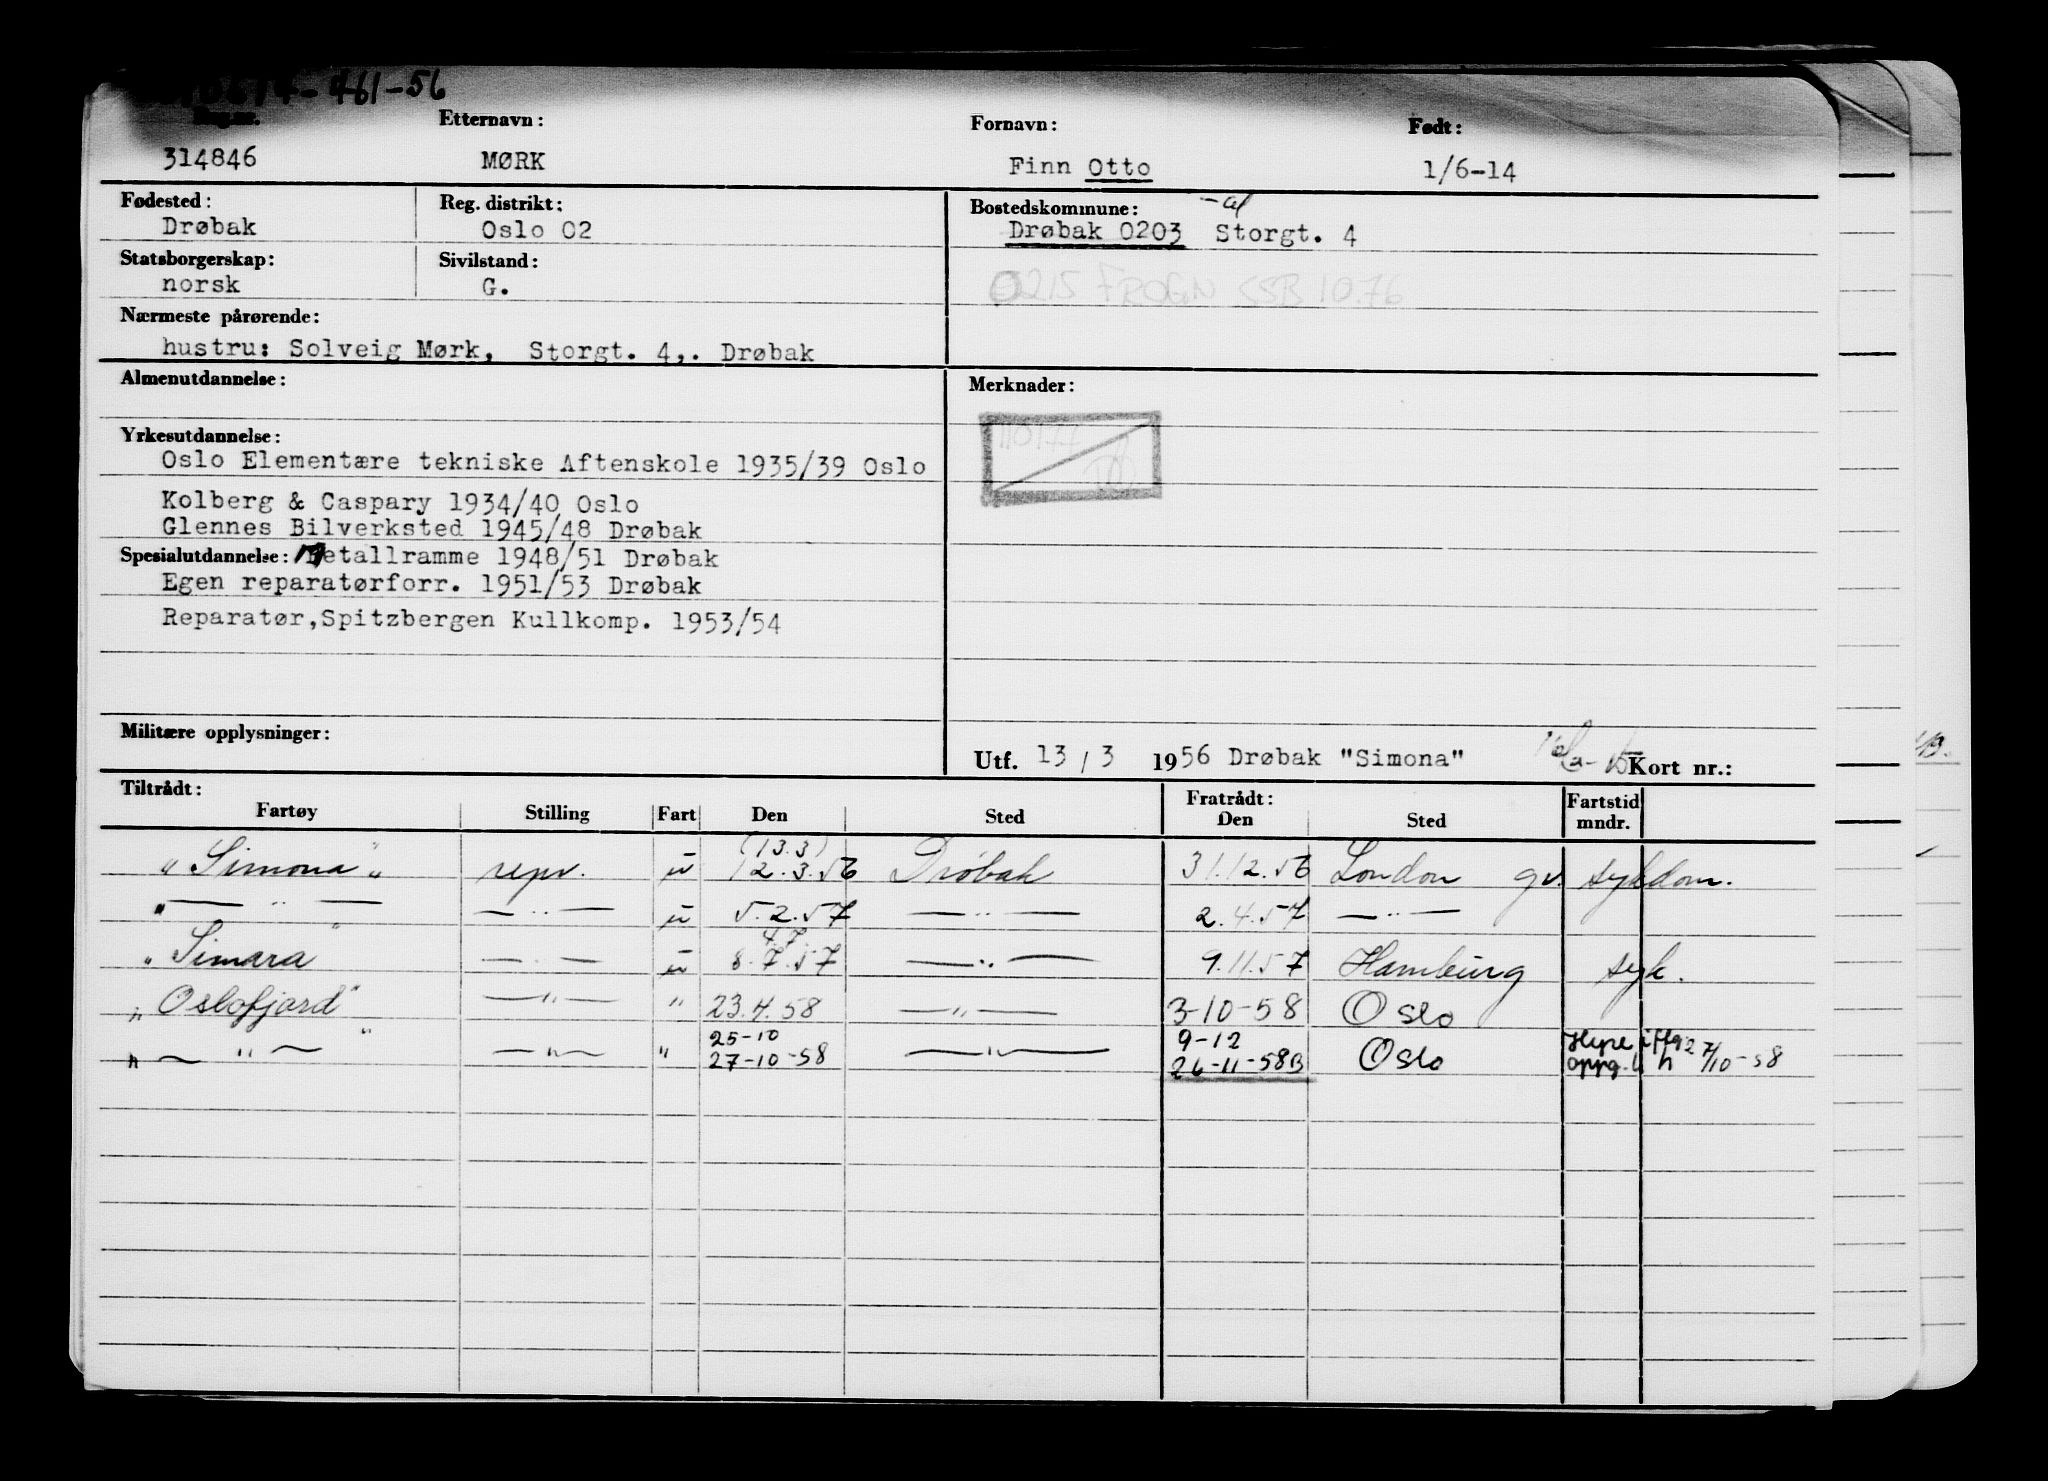 -461-56
Reg.nr. Etternavn: Fornavn: Født:
314846 MØRK Finn Otto 1/6-14
Fødested: Reg. distrikt: Bostedskommune:
Drøbak Oslo 02 Drøbak 0203 Storgt. 4
Statsborgerskap: Sivilstand:
norsk G. 0215 FROGN SSB 10.76
Nærmeste pårørende:
hustru: Solveig Mørk, Storgt. 4,. Drøbak
Almenutdannelse: Merknader:
Yrkesutdannelse:
Oslo Elementære tekniske Aftenskole 1935/39 Oslo
Kolberg & Caspary 1934/40 Oslo
Glennes Bilverksted 1945/48 Drøbak
Spesialutdannelse: Metallramme 1948/51 Drøbak
Egen reparatørforr. 1951/53 Drøbak
Reparatør,Spitzbergen Kullkomp. 1953/54
Militære opplysninger:
Utf. 13/3 1956 Drøbak "Simona" Kort nr.:
Tiltrådt: Fratrådt: Fartstid
Fartøy Stilling Fart Den Sted Den Sted mndr.
(13.3)
"Simona" repr. u 12.3.56 Drøbak 31.12.56 London gv. sykdom.
— " — — " — u 5.2.57 — " — 2.4.57 — " —
4.7
"Simara" — " — u 8.7.57 — " — 9.11.57 Hamburg syk.
"Oslofjord" — " — " 23.4.58 — " — 3-10-58 Oslo
25-10 9-12
" — " — " — " — " 27-10-58 — " — 26-11-58B Oslo Hyre 27/10-58